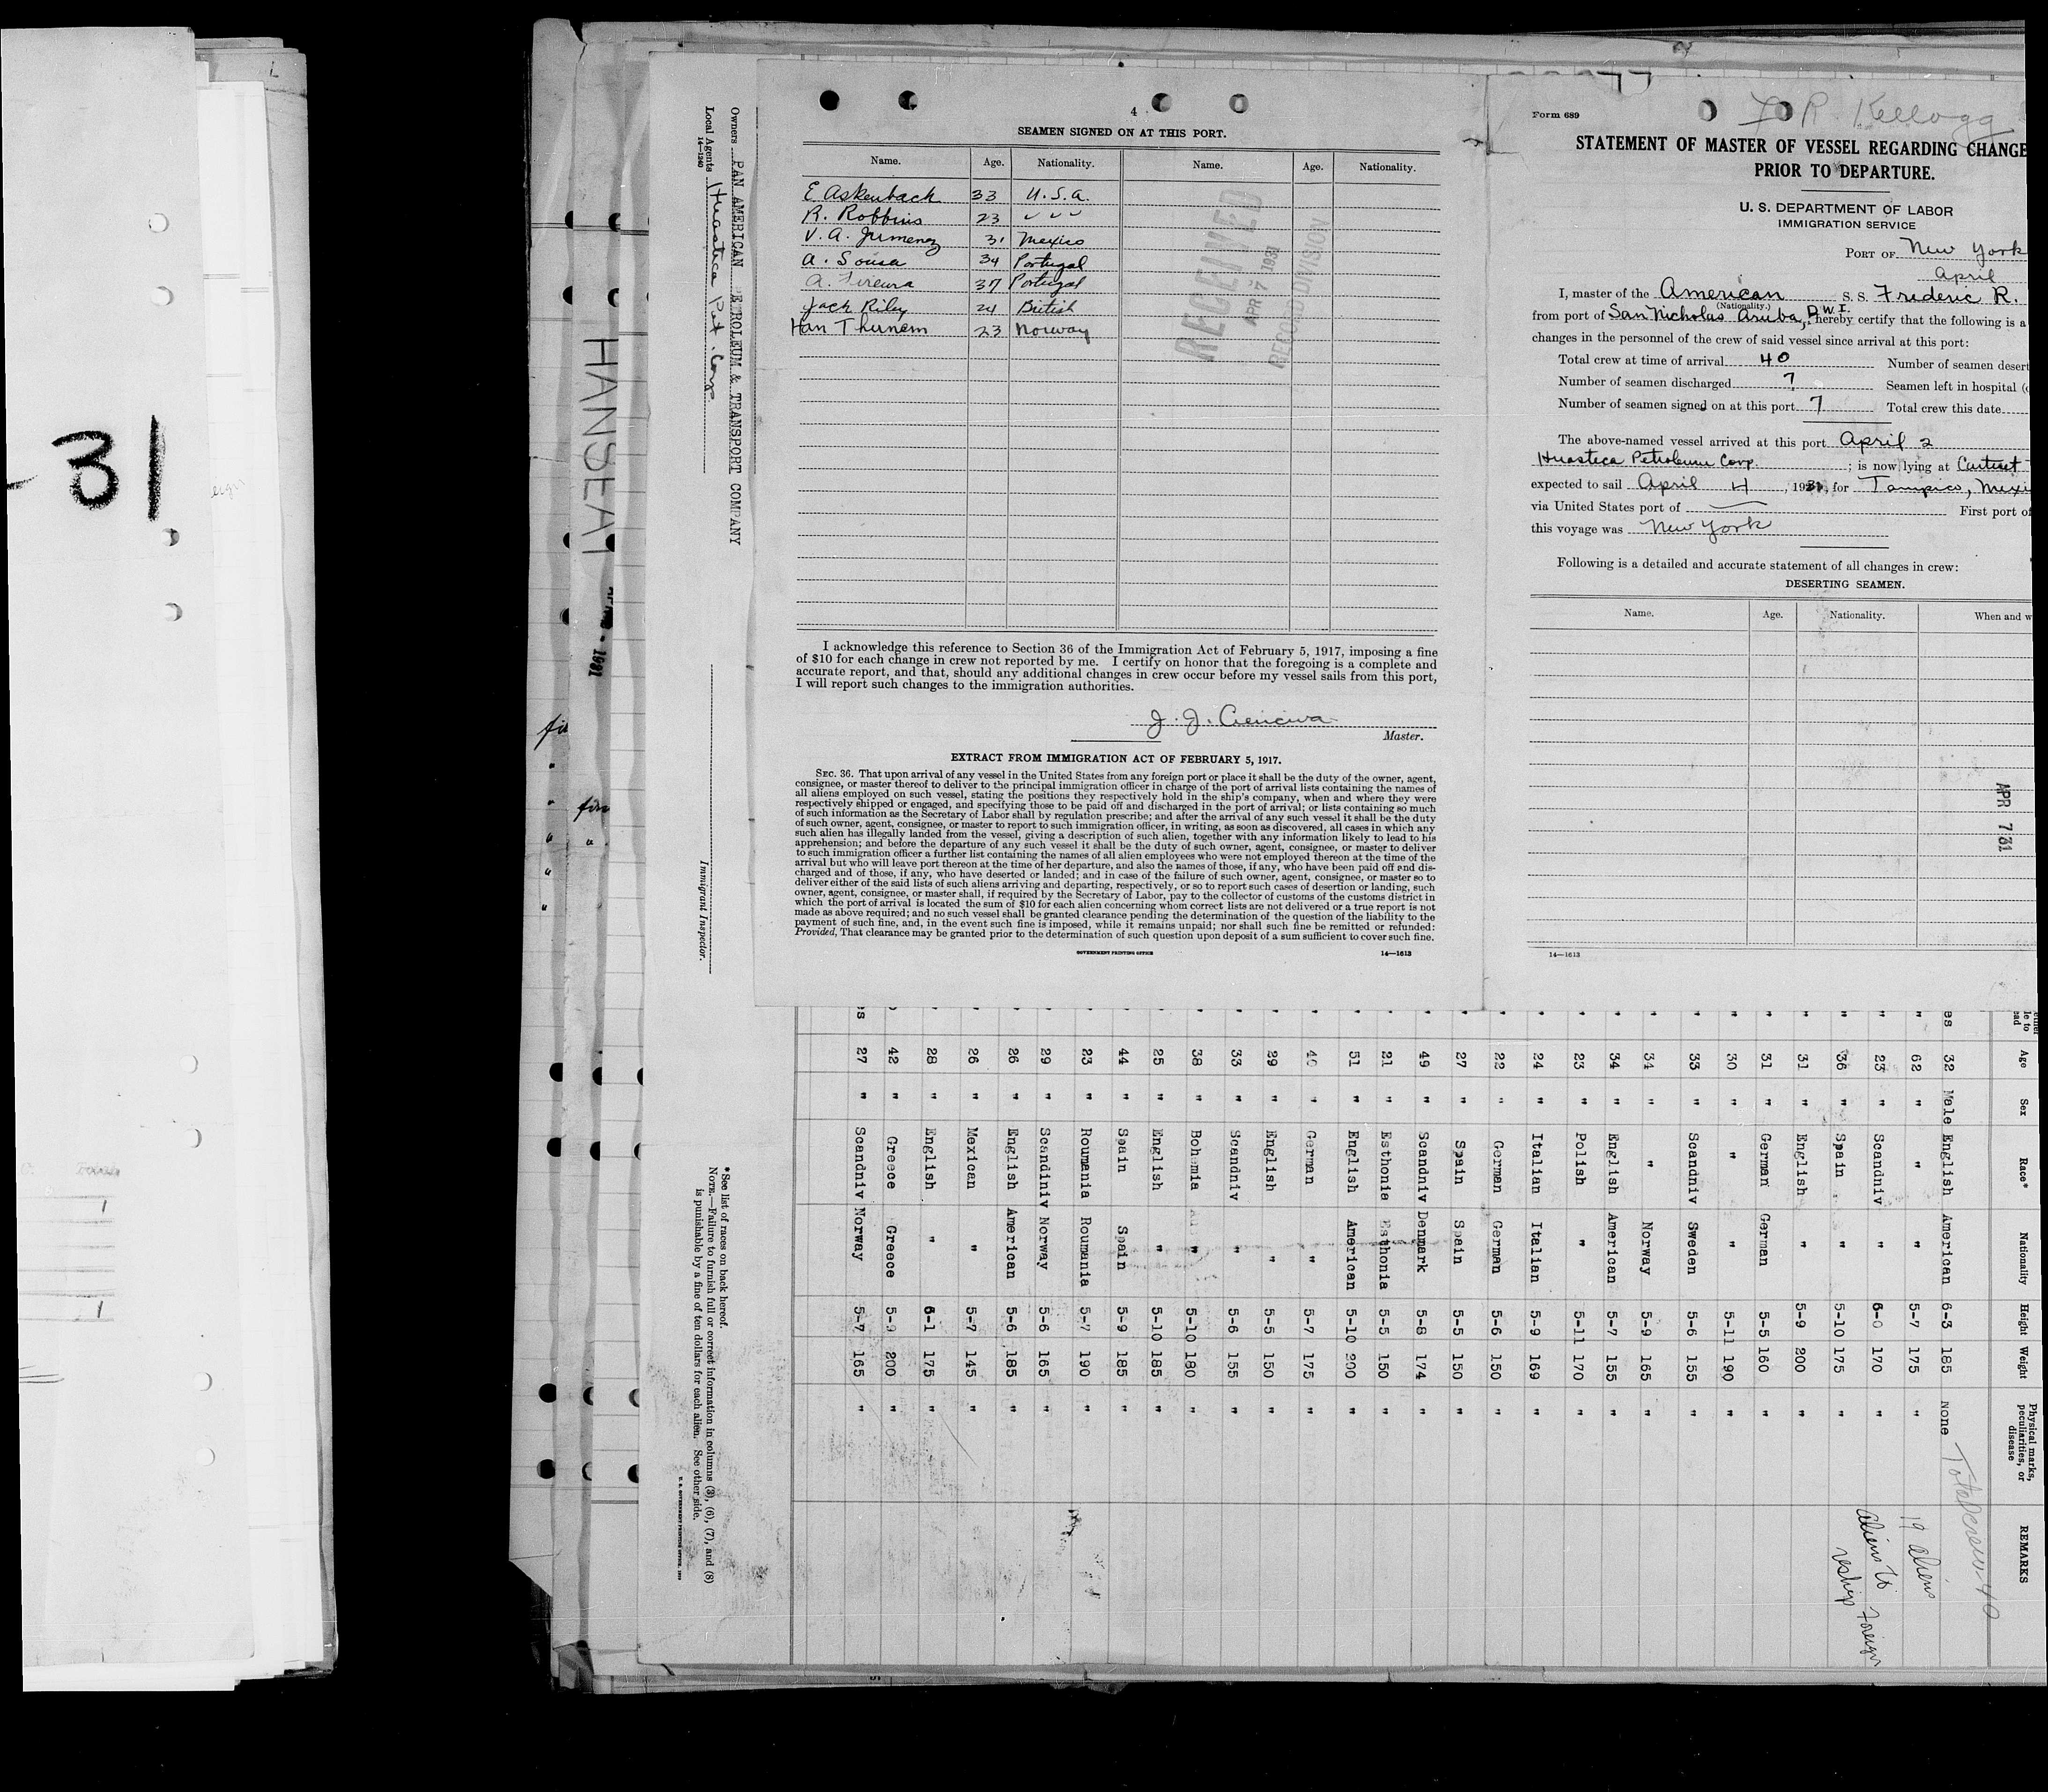 31
HANSEAT
Owners PAN AMERICAN PETROLEUM & TRANSPORT COMPANY
Local Agents Huasteca Pet. Corp
14—1240
Immigrant Inspector.
*See list of races on back hereof.
NOTE.—Failure to furnish full or correct information in columns (3), (6), (7), and (8)
is punishable by a fine of ten dollars for each alien. See other side.
4
SEAMEN SIGNED ON AT THIS PORT.
Name. Age. Nationality. Name. Age. Nationality.
E Askenback 33 U.S.A.
R. Robbins 23 〃 〃 〃
V. A. Jimenez 31 Mexico
A. Sousa 34 Portugal
A. 37 Portugal
Jack Riley 24 British
Han Thunem 23 Norway
RECEIVED
APR 7 1931
RECORD DIVISION
I acknowledge this reference to Section 36 of the Immigration Act of February 5, 1917, imposing a fine
of $10 for each change in crew not reported by me. I certify on honor that the foregoing is a complete and
accurate report, and that, should any additional changes in crew occur before my vessel sails from this port,
I will report such changes to the immigration authorities.
J. J.
Master.
EXTRACT FROM IMMIGRATION ACT OF FEBRUARY 5, 1917.
SEC. 36. That upon arrival of any vessel in the United States from any foreign port or place it shall be the duty of the owner, agent,
consignee, or master thereof to deliver to the principal immigration officer in charge of the port of arrival lists containing the names of
all aliens employed on such vessel, stating the positions they respectively hold in the ship's company, when and where they were
respectively shipped or engaged, and specifying those to be paid off and discharged in the port of arrival; or lists containing so much
of such information as the Secretary of Labor shall by regulation prescribe; and after the arrival of any such vessel it shall be the duty
of such owner, agent, consignee, or master to report to such immigration officer, in writing, as soon as discovered, all cases in which any
such alien has illegally landed from the vessel, giving a description of such alien, together with any information likely to lead to his
apprehension; and before the departure of any such vessel it shall be the duty of such owner, agent, consignee, or master to deliver
to such immigration officer a further list containing the names of all alien employees who were not employed thereon at the time of the
arrival but who will leave port thereon at the time of her departure, and also the names of those, if any, who have been paid off and dis-
charged and of those, if any, who have deserted or landed; and in case of the failure of such owner, agent, consignee, or master so to
deliver either of the said lists of such aliens arriving and departing, respectively, or so to report such cases of desertion or landing, such
owner, agent, consignee, or master shall, if required by the Secretary of Labor, pay to the collector of customs of the customs district in
which the port of arrival is located the sum of $10 for each alien concerning whom correct lists are not delivered or a true report is not
made as above required; and no such vessel shall be granted clearance pending the determination of the question of the liability to the
payment of such fine, and, in the event such fine is imposed, while it remains unpaid; nor shall such fine be remitted or refunded:
Provided, That clearance may be granted prior to the determination of such question upon deposit of a sum sufficient to cover such fine.
GOVERNMENT PRINTING OFFICE 14—1613
Form 689
F R. Kellogg
STATEMENT OF MASTER OF VESSEL REGARDING CHANGE
PRIOR TO DEPARTURE.
U. S. DEPARTMENT OF LABOR
IMMIGRATION SERVICE
PORT OF New York
April
I, master of the American S. S. Frederic R.
(Nationality.)
from port of San Nicholas Aruba, D.W.I. hereby certify that the following is a
changes in the personnel of the crew of said vessel since arrival at this port:
Total crew at time of arrival 40 Number of seamen desert
Number of seamen discharged 7 Seamen left in hospital (
Number of seamen signed on at this port 7 Total crew this date
The above-named vessel arrived at this port April 2
Huasteca Petroleum Corp. ; is now lying at Carteret
expected to sail April 4, 1931, for Tampico, Mexi
via United States port of — First port of
this voyage was New York
Following is a detailed and accurate statement of all changes in crew:
DESERTING SEAMEN.
Name. Age. Nationality. When and w
APR 7 31
14—1613
Age Sex Race* Nationality Height Weight Physical marks, peculiarities, or disease REMARKS
es 32 Male English American 6-3 185 None Total crew 40
" 62 " " " 5-7 175 " 19 aliens
" 23 " Scandniv " 6-0 170 " aliens to foreign
" 36 " Spain " 5-10 175 " reship
" 31 " English " 5-9 200 "
" 31 " German German 5-5 160 "
" 30 " " " 5-11 190 "
" 33 " Scandniv Sweden 5-6 155 "
" 34 " " Norway 5-9 165 "
" 34 " English American 5-7 155 "
" 23 " Polish " 5-11 170 "
" 24 " Italian Italian 5-9 169 "
" 22 " German German 5-6 150 "
" 27 " Spain Spain 5-5 150 "
" 49 " Scandniv Denmark 5-8 174 "
" 21 " Esthonia Esthonia 5-5 150 "
" 51 " English American 5-10 200 "
" 40 " German " 5-7 175 "
" 29 " English " 5-5 150 "
" 33 " Scandniv " 5-6 155 "
" 38 " Bohemia " 5-10 180 "
" 25 " English " 5-10 185 "
" 44 " Spain Spain 5-9 185 "
" 23 " Roumania Roumania 5-7 190 "
" 29 " Scandiniv Norway 5-6 165 "
" 26 " English American 5-6 185 "
" 26 " Mexican " 5-7 145 "
" 28 " English " 6-1 175 "
" 42 " Greece Greece 5-9 200 "
es 27 " Scandniv Norway 5-7 165 "